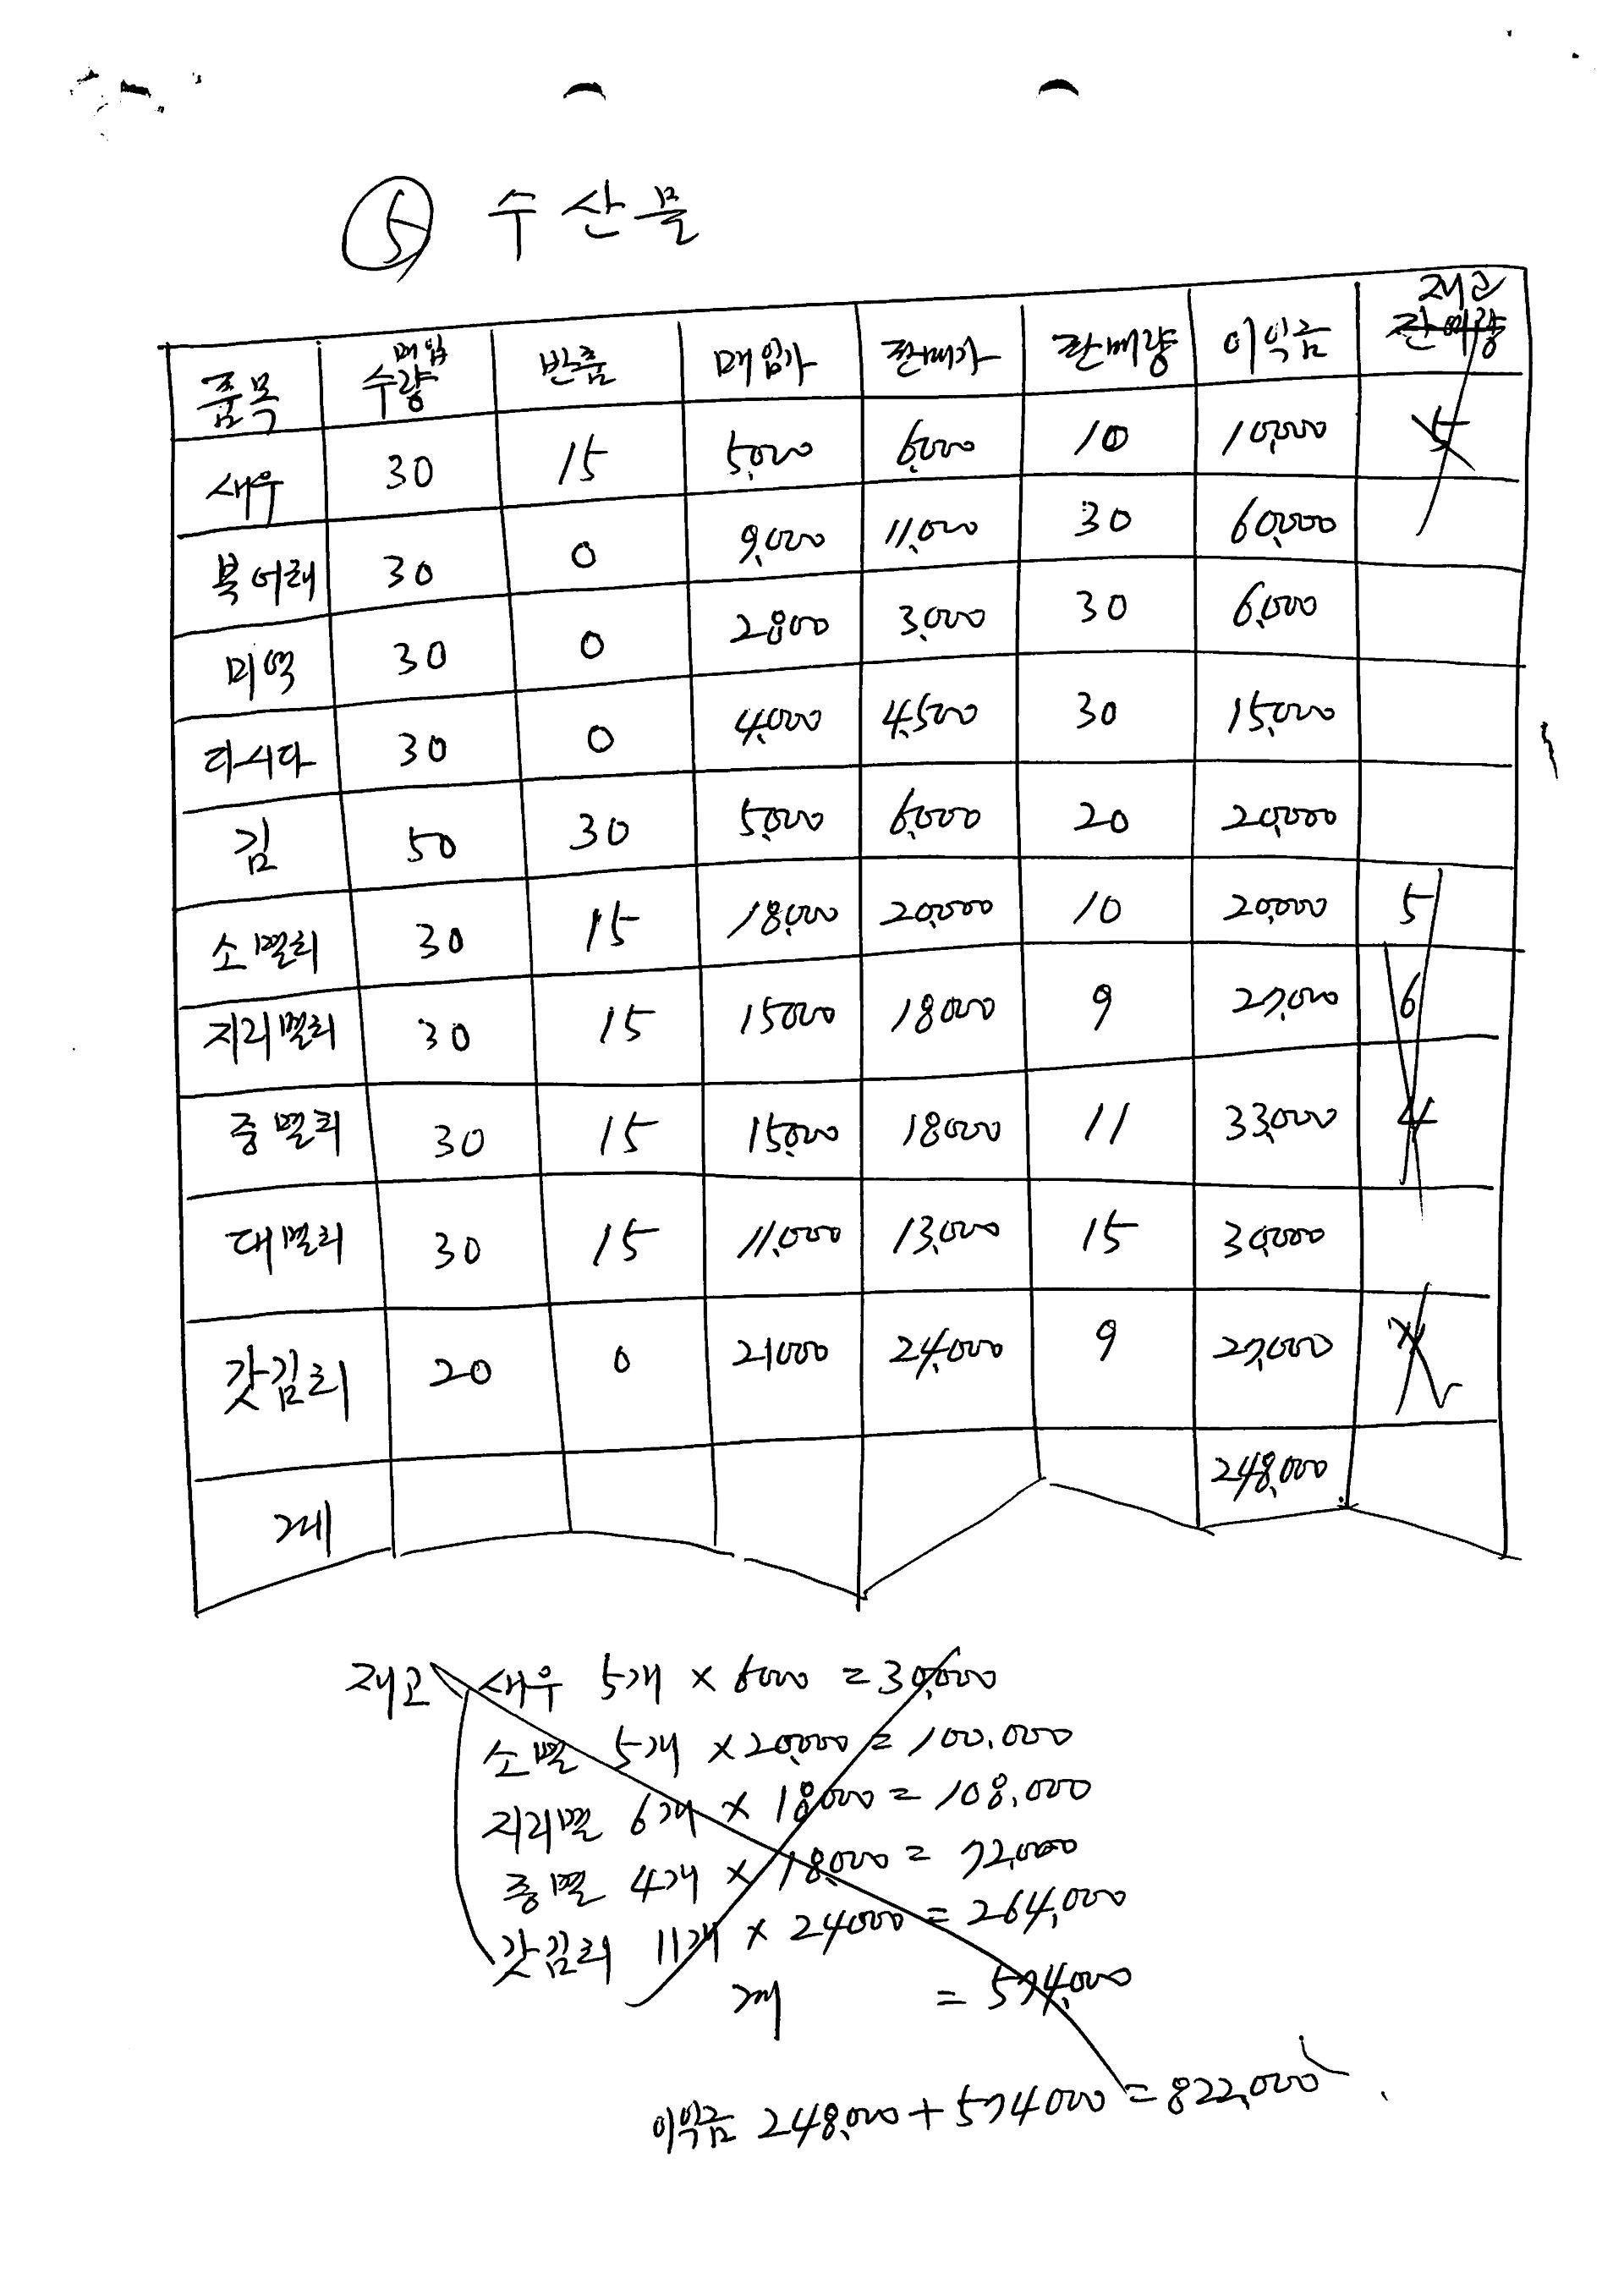 ⑤ 수산물
품목 매입수량 반품 매입가 판매가 판매량 이익금 재고 판매량
새우 30 15 5,000 6,000 10 10,000 5
북어채 30 0 9,000 11,000 30 60,000
미역 30 0 2,800 3,000 30 6,000
다시다 30 0 4,000 4,500 30 15,000
김 50 30 5,000 6,000 20 20,000
소멸치 30 15 18,000 20,000 10 20,000 5
지리멸치 30 15 15000 18000 9 27,000 6
중멸치 30 15 15,000 18000 11 33,000 4
대멸치 30 15 11,000 13,000 15 30,000
갓김치 20 0 21000 24,000 9 27,000
계 248,000
재고 새우 5개 × 6000 = 30,000
소멸 5개 × 20,000 = 100,000
지리멸 6개 × 18,000 = 108,000
중멸 4개 × 18,000 = 72,000
갓김치 11개 × 24000 = 264,000
계 = 574,000
이익금 248,000 + 574000 = 822,000